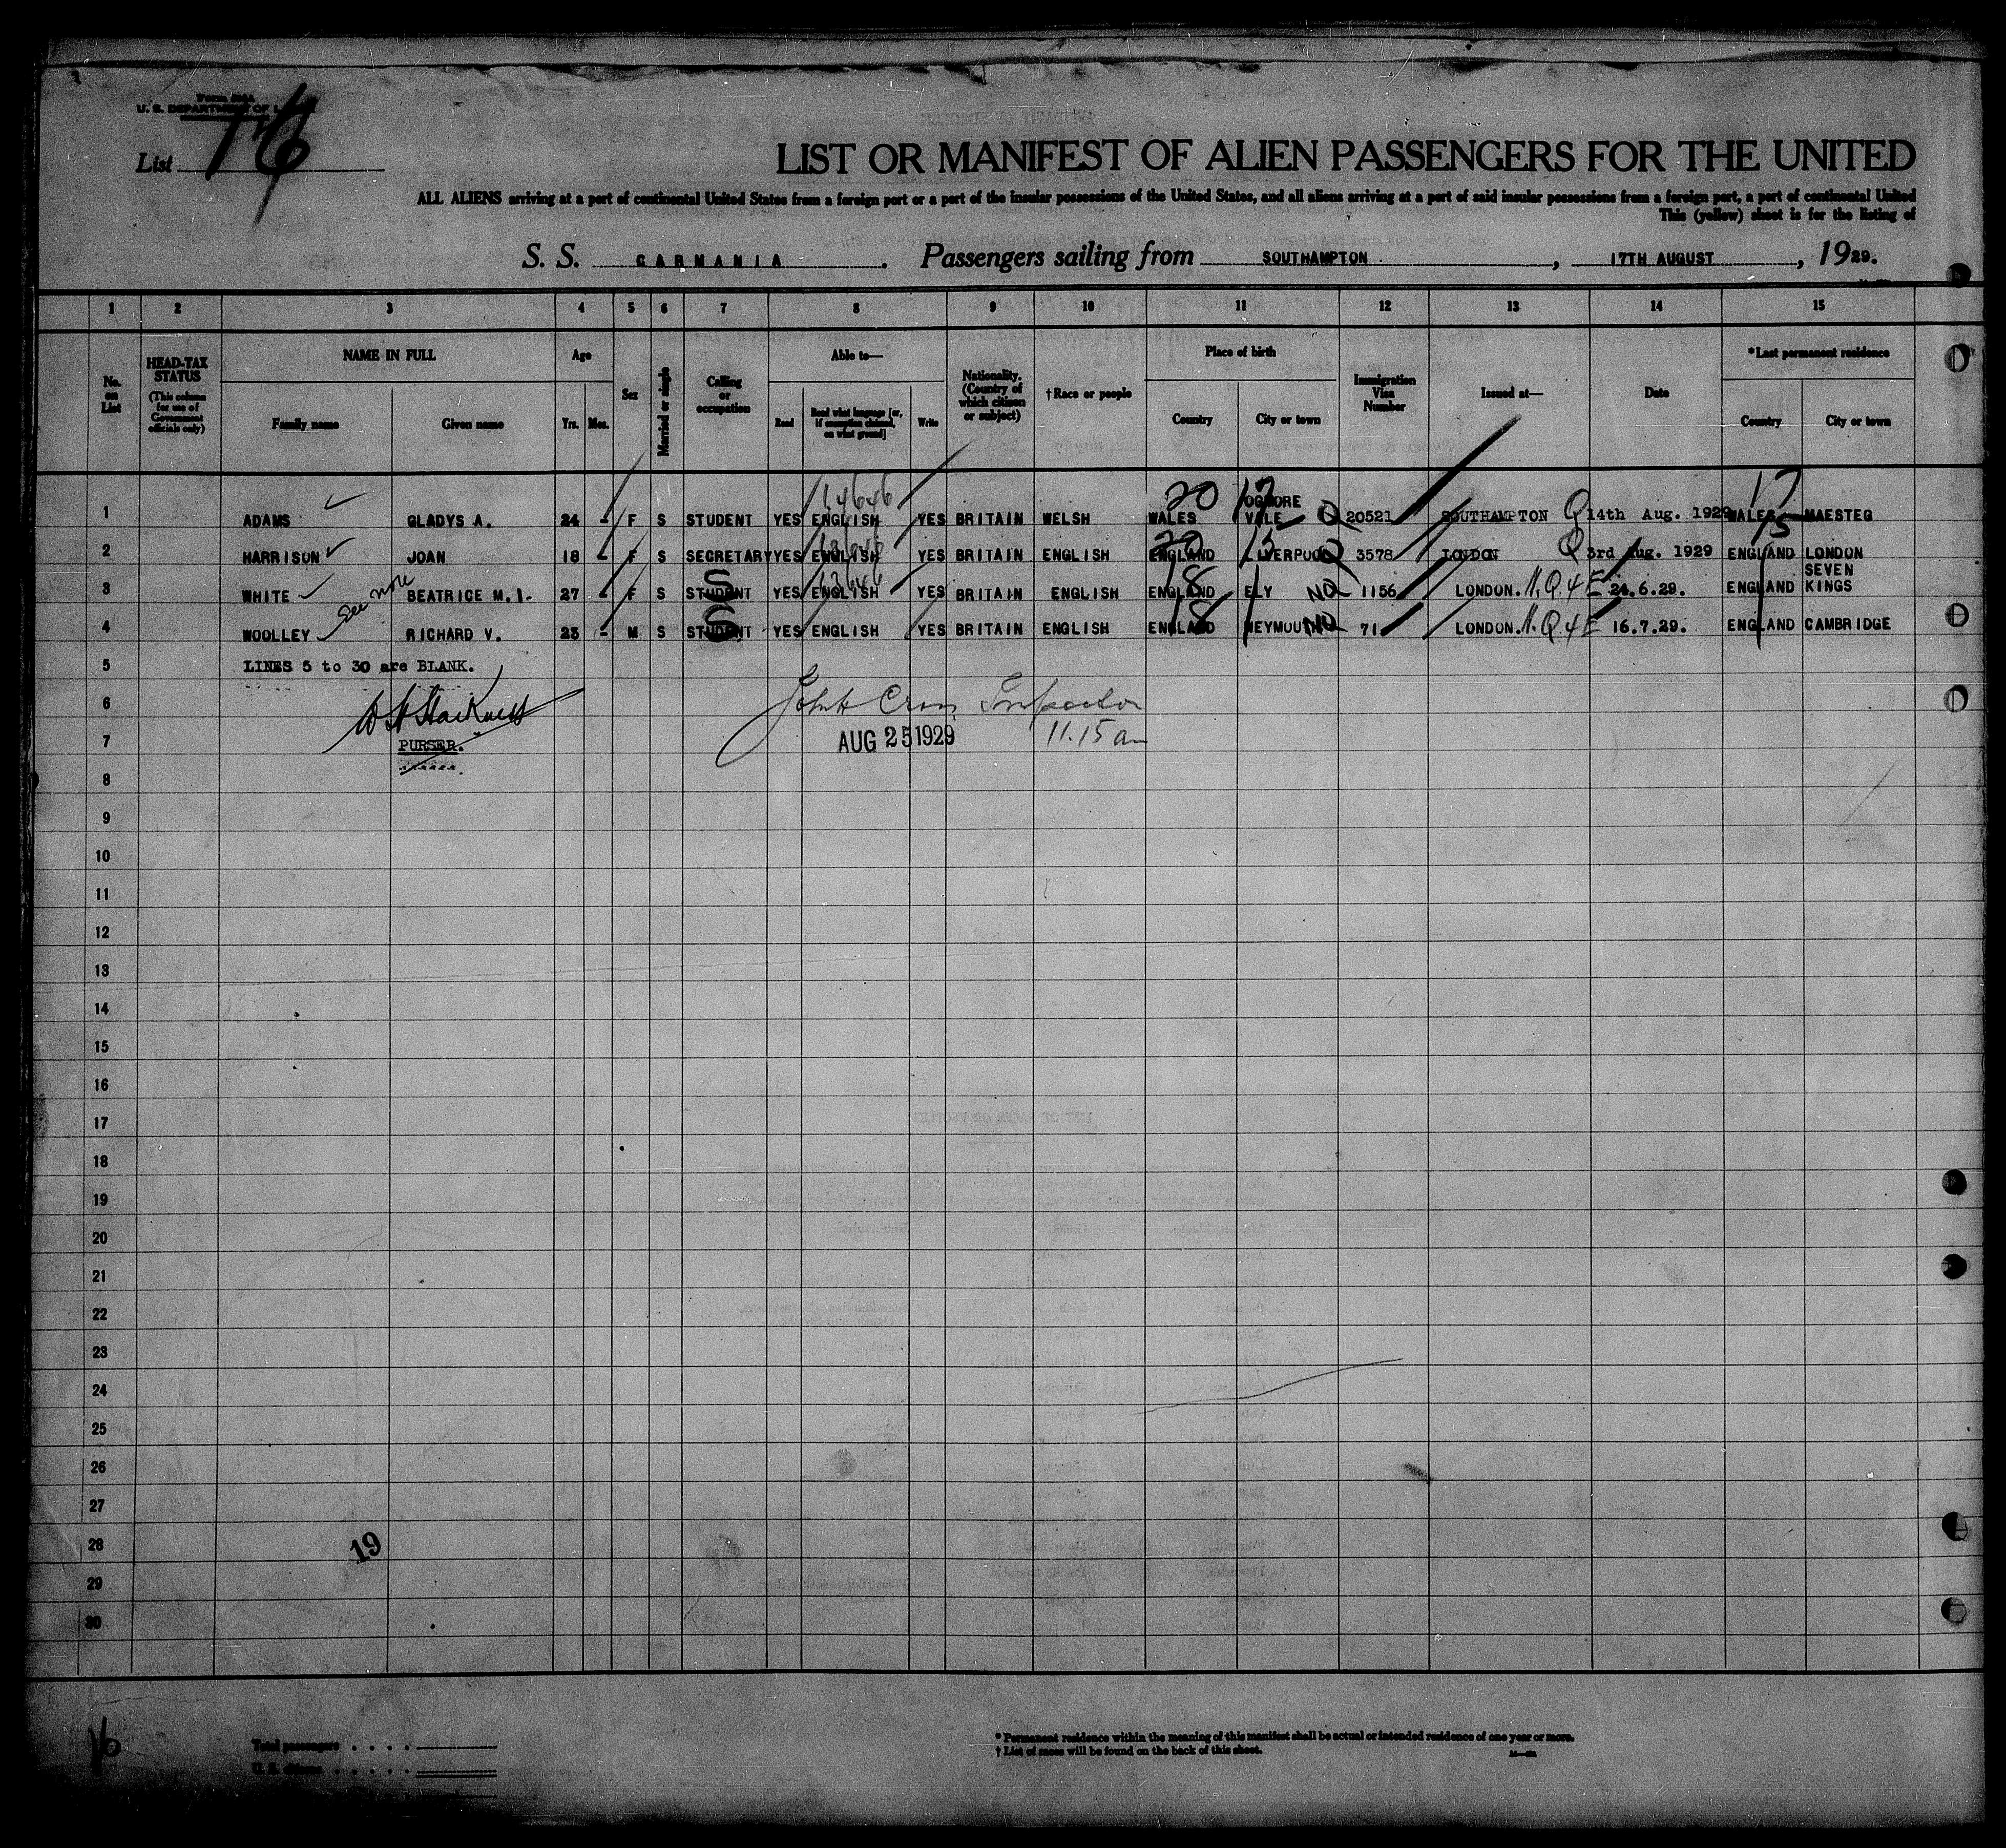 U. S. DEPARTMENT OF
List 16
LIST OR MANIFEST OF ALIEN PASSENGERS FOR THE UNITED
ALL ALIENS arriving at a port of continental United States from a foreign port or a port of the insular possessions of the United States, and all aliens arriving at a port of said insular possessions from a foreign port, a port of continental United
This (yellow) sheet is for the listing of
S. S. CARMANIA . Passengers sailing from SOUTHAMPTON , 17TH AUGUST , 1929.
1 2 3 4 5 6 7 8 9 10 11 12 13 14 15
No. on List
HEAD-TAX STATUS (This column for use of Government officials only)
NAME IN FULL
Family name Given name
Age
Yrs. Mos.
Sex
Married or single
Calling or occupation
Able to—
Read Read what language [or, if exemption claimed, on what ground] Write
Nationality. (Country of which citizen or subject)
†Race or people
Place of birth
Country City or town
Immigration Visa Number
Issued at—
Date
*Last permanent residence
Country City or town
20 17 17
1 ADAMS GLADYS A. 24 - F S STUDENT YES ENGLISH YES BRITAIN WELSH WALES OGMORE VALE Q 20521 SOUTHAMPTON Q 14th Aug. 1929 WALES MAESTEG
2 HARRISON JOAN 18 - F S SECRETARY YES ENGLISH YES BRITAIN ENGLISH ENGLAND LIVERPOOL Q 3578 LONDON Q 3rd Aug. 1929 ENGLAND LONDON
3 WHITE BEATRICE M.I. 27 - F S STUDENT YES ENGLISH YES BRITAIN ENGLISH ENGLAND ELY NQ 1156 LONDON. N.Q.4E 24.6.29. ENGLAND SEVEN KINGS
4 WOOLLEY RICHARD V. 23 - M S STUDENT YES ENGLISH YES BRITAIN ENGLISH ENGLAND WEYMOUTH NQ 71 LONDON. N.Q.4E 16.7.29. ENGLAND CAMBRIDGE
5 LINES 5 to 30 are BLANK.
6 Inspector
7 PURSER. AUG 25 1929 11.15 am
8
9
10
11
12
13
14
15
16
17
18
19
20
21
22
23
24
25
26
27
28 19
29
30
16
Total passengers
* Permanent residence within the meaning of this manifest shall be actual or intended residence of one year or more.
† List of races will be found on the back of this sheet.